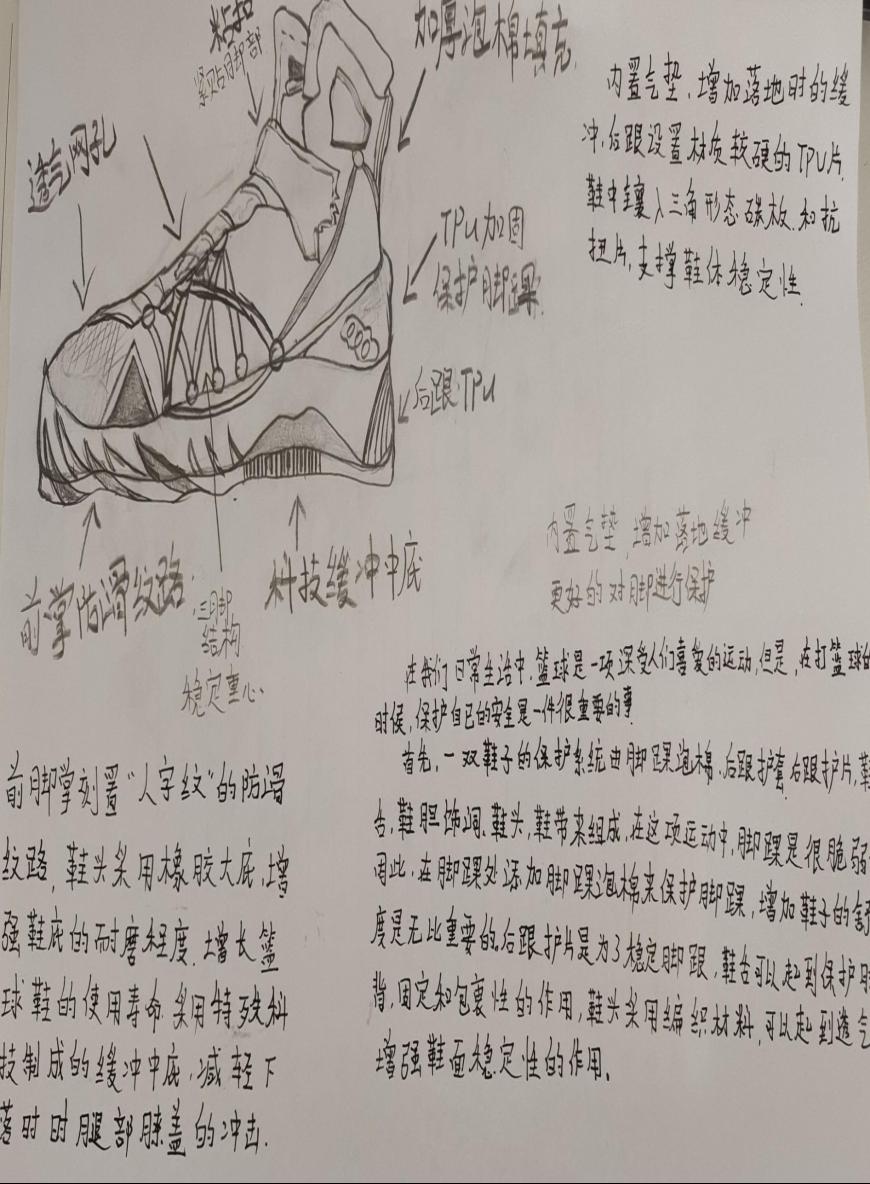 粘扣
紧贴脚部
加厚泡棉填充
透气网孔
内置气垫，增加落地时的缓
冲，后跟设置材质较硬的TPU片，
鞋中镶入三角形态碳板，和抗
扭片，支撑鞋体稳定性。
TPU加固
保护脚踝
后跟TPU
前掌防滑纹路
三角
结构
稳定重心、
科技缓冲中底
内置气垫，增加落地缓冲
更好的对脚进行保护
在我们日常生活中，篮球是一项深受人们喜爱的运动，但是，在打篮球的
时候，保护自己的安全是一件很重要的事
首先，一双鞋子的保护系统由脚踝泡棉、后跟护套、后跟护片，鞋
舌，鞋胆饰洞、鞋头，鞋带来组成，在这项运动中，脚踝是很脆弱
因此，在脚踝处添加脚踝泡棉来保护脚踝，增加鞋子的舒
度是无比重要的。后跟护片是为了稳定脚跟，鞋舌可以起到保护脚
背，固定和包裹性的作用，鞋头采用编织材料，可以起到透气
增强鞋面稳定性的作用。
前脚掌刻置“人字纹”的防滑
纹路，鞋头采用橡胶大底，增
强鞋底的耐磨程度，增长篮
球鞋的使用寿命，采用特殊科
技制成的缓冲中底，减轻下
落时对腿部膝盖的冲击．